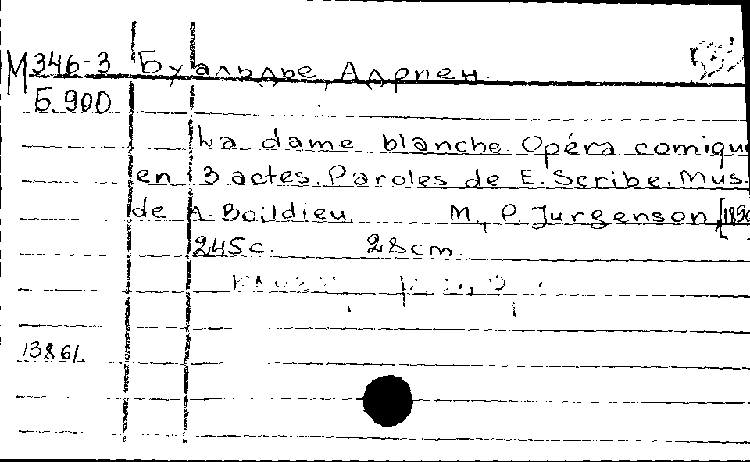 М346-3 Буальдье, Адриен
Б.900
La dame blanche. Opéra comique
en 3 actes. Paroles de E. Scribe. Mus.
de A. Boildieu. M., P. Jurgenson,
245с. 28cm.